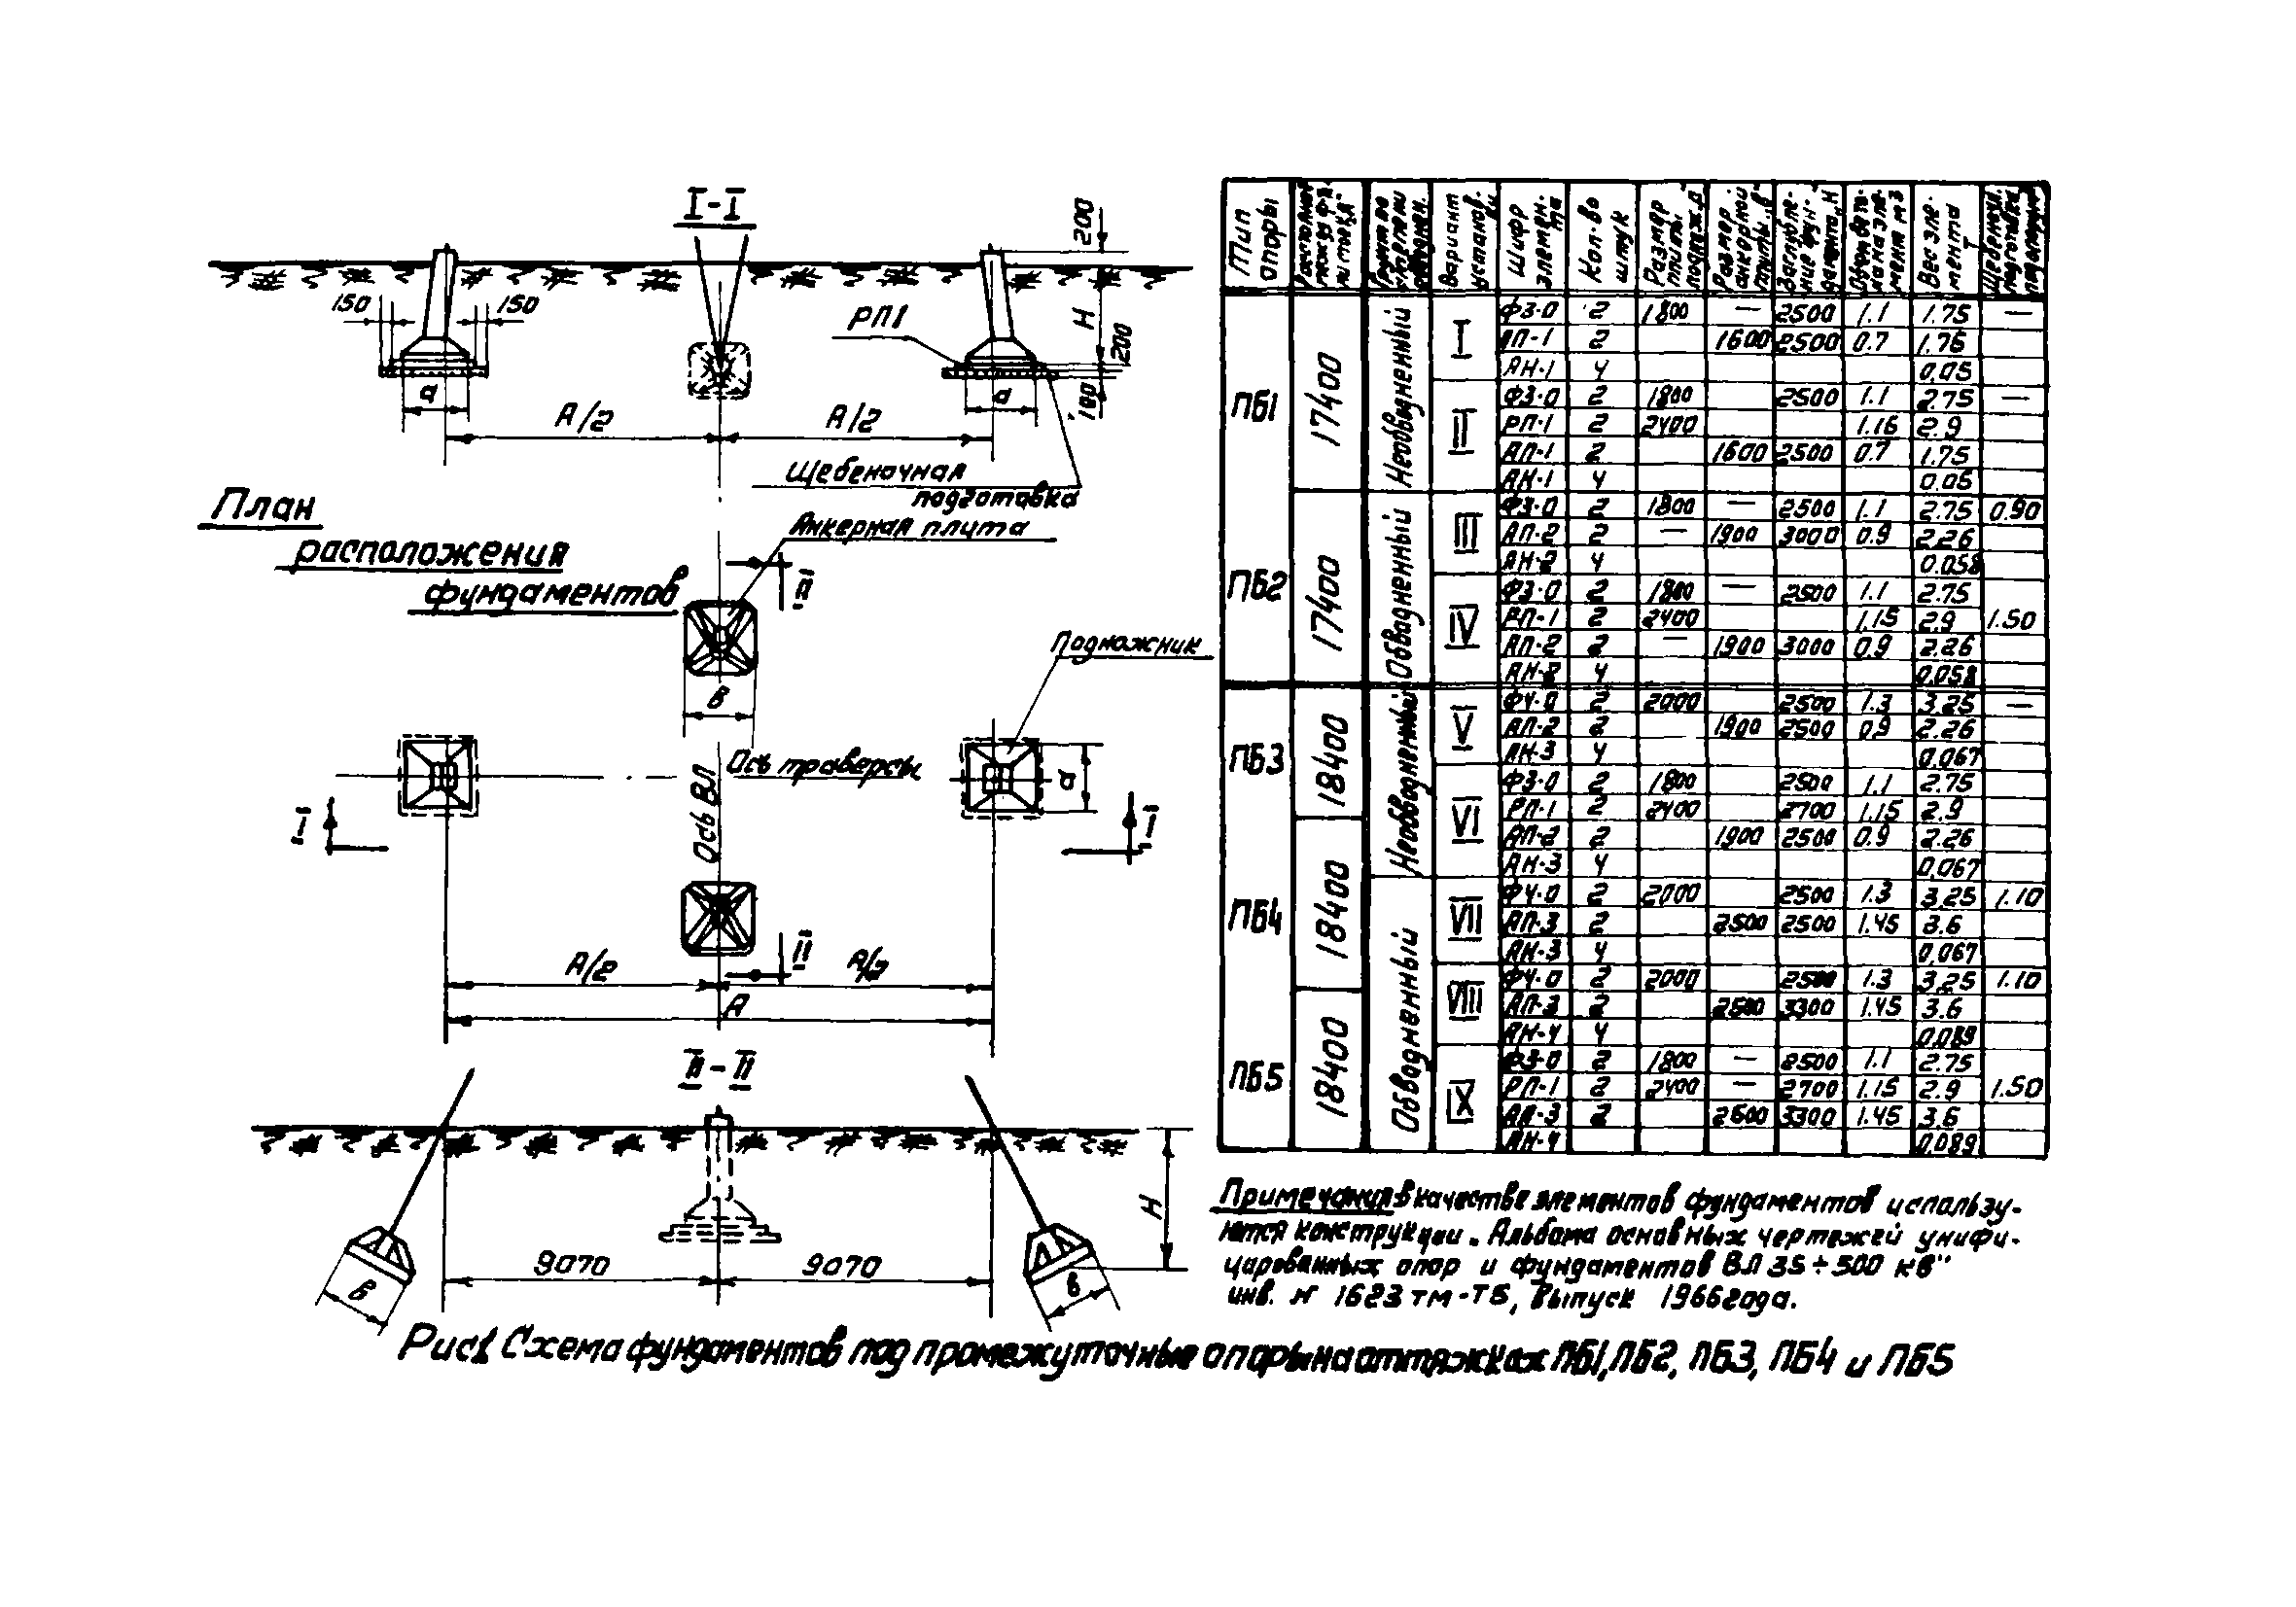 I-I
200
150
150
РП1
Н
200
100
а
а
А/2
А/2
Щебеночная
подготовка
План
расположения
фундаментов
Анкерная плита
II
Подножник
В
Ось траверсы
Ось ВЛ
а
I
I
II
А/2
А/2
А
II-II
Н
9070
9070
В
в
Тип опоры
Вариант установ.
Шифр элемен-та
Кол-во штук
Размер плиты поднож. а
Размер анкорной плиты „в"
Вес эле-мента Т
ПБ1 17400 Необводненный
I
Ф3-0 2 1800 — 2500 1.1 1.75 —
АП-1 2 1600 2500 0.7 1.76
АН-1 4 0.05
II
Ф3-0 2 1800 2500 1.1 2.75 —
РП-1 2 2400 1.16 2.9
АП-1 2 1600 2500 0.7 1.75
АН-1 4 0.05
ПБ2 17400 Обводненный
III
Ф3-0 2 1800 — 2500 1.1 2.75 0.90
АП-2 2 — 1900 3000 0.9 2.26
АН-2 4 0.058
IV
Ф3-0 2 1800 — 2500 1.1 2.75
РП-1 2 2400 1.15 2.9 1.50
АП-2 2 — 1900 3000 0.9 2.26
АН-2 4 0.058
ПБ3 18400 Необводненный
V
Ф4-0 2 2000 2500 1.3 3.25 —
АП-2 2 1900 2500 0.9 2.26
АН-3 4 0.067
VI
Ф3-0 2 1800 2500 1.1 2.75
РП-1 2 2400 2700 1.15 2.9
АП-2 2 1900 2500 0.9 2.26
АН-3 4 0.067
ПБ4 18400 Обводненный
VII
Ф4-0 2 2000 2500 1.3 3.25 1.10
АП-3 2 2500 2500 1.45 3.6
АН-3 4 0.067
VIII
Ф4-0 2 2000 2500 1.3 3.25 1.10
АП-3 2 2500 3300 1.45 3.6
АН-4 4 0.089
ПБ5 18400
IX
Ф3-0 2 1800 — 2500 1.1 2.75
РП-1 2 2400 — 2700 1.15 2.9 1.50
АП-3 2 2600 3300 1.45 3.6
АН-4 0.089
Примечания: в качестве элементов фундаментов использу-
ются конструкции „Альбома основных чертежей унифи-
цированных опор и фундаментов ВЛ 35÷500 кв"
инв. № 1623 тм-Т5, Выпуск 1966 года.
Рис1 Схема фундаментов под промежуточные опоры на оттяжках ПБ1, ПБ2, ПБ3, ПБ4 и ПБ5